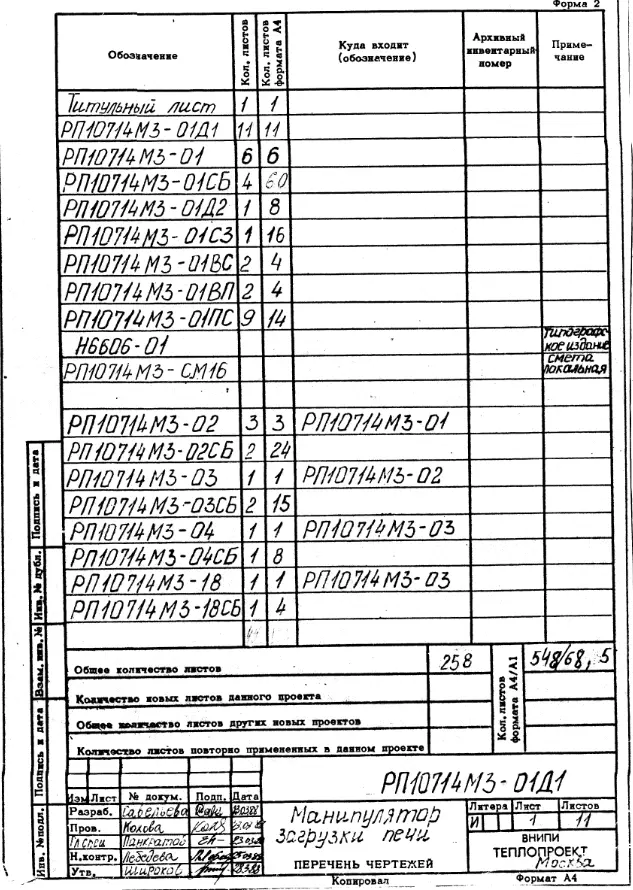 Форма 2
Обозначение Кол. листов Кол. листов формата А4 Куда входит (обозначение) Архивный инвентарный номер Приме-чание
Титульный лист 1 1
РП10714М3-01Д1 11 11
РП10714М3-01 6 6
РП10714М3-01СБ 4 60
РП10714М3-01Д2 1 8
РП10714М3-01С3 1 16
РП10714М3-01ВС 2 4
РП10714М3-01ВП 2 4
РП10714М3-01ПС 9 14
Н6606-01 Типографс-кое издание
РП10714М3-СМ16 смета локальная
РП10714М3-02 3 3 РП10714М3-01
РП10714М3-02СБ 2 24
РП10714М3-03 1 1 РП10714М3-02
РП10714М3-03СБ 2 15
РП10714М3-04 1 1 РП10714М3-03
РП10714М3-04СБ 1 8
РП10714М3-18 1 1 РП10714М3-03
РП10714М3-18СБ 1 4
Общее количество листов 258 Кол. листов формата А4/А1 548/68,5
Количество новых листов данного проекта
Общее количество листов других новых проектов
Количество листов повторно примененных в данном проекте
РП10714М3-01Д1
Изм Лист № докум. Подп. Дата
Разраб. Савельева
Пров. Колова
Гл.спец Панкратов
Н.контр. Лебедева
Утв. Широков
Манипулятор
загрузки печи
ПЕРЕЧЕНЬ ЧЕРТЕЖЕЙ
Литера Лист Листов
И 1 11
ВНИПИ
ТЕПЛОПРОЕКТ
Москва
Копировал Формат А4
Подпись и дата
Инв. № дубл.
Взам. инв. №
Подпись и дата
Инв. № подл.